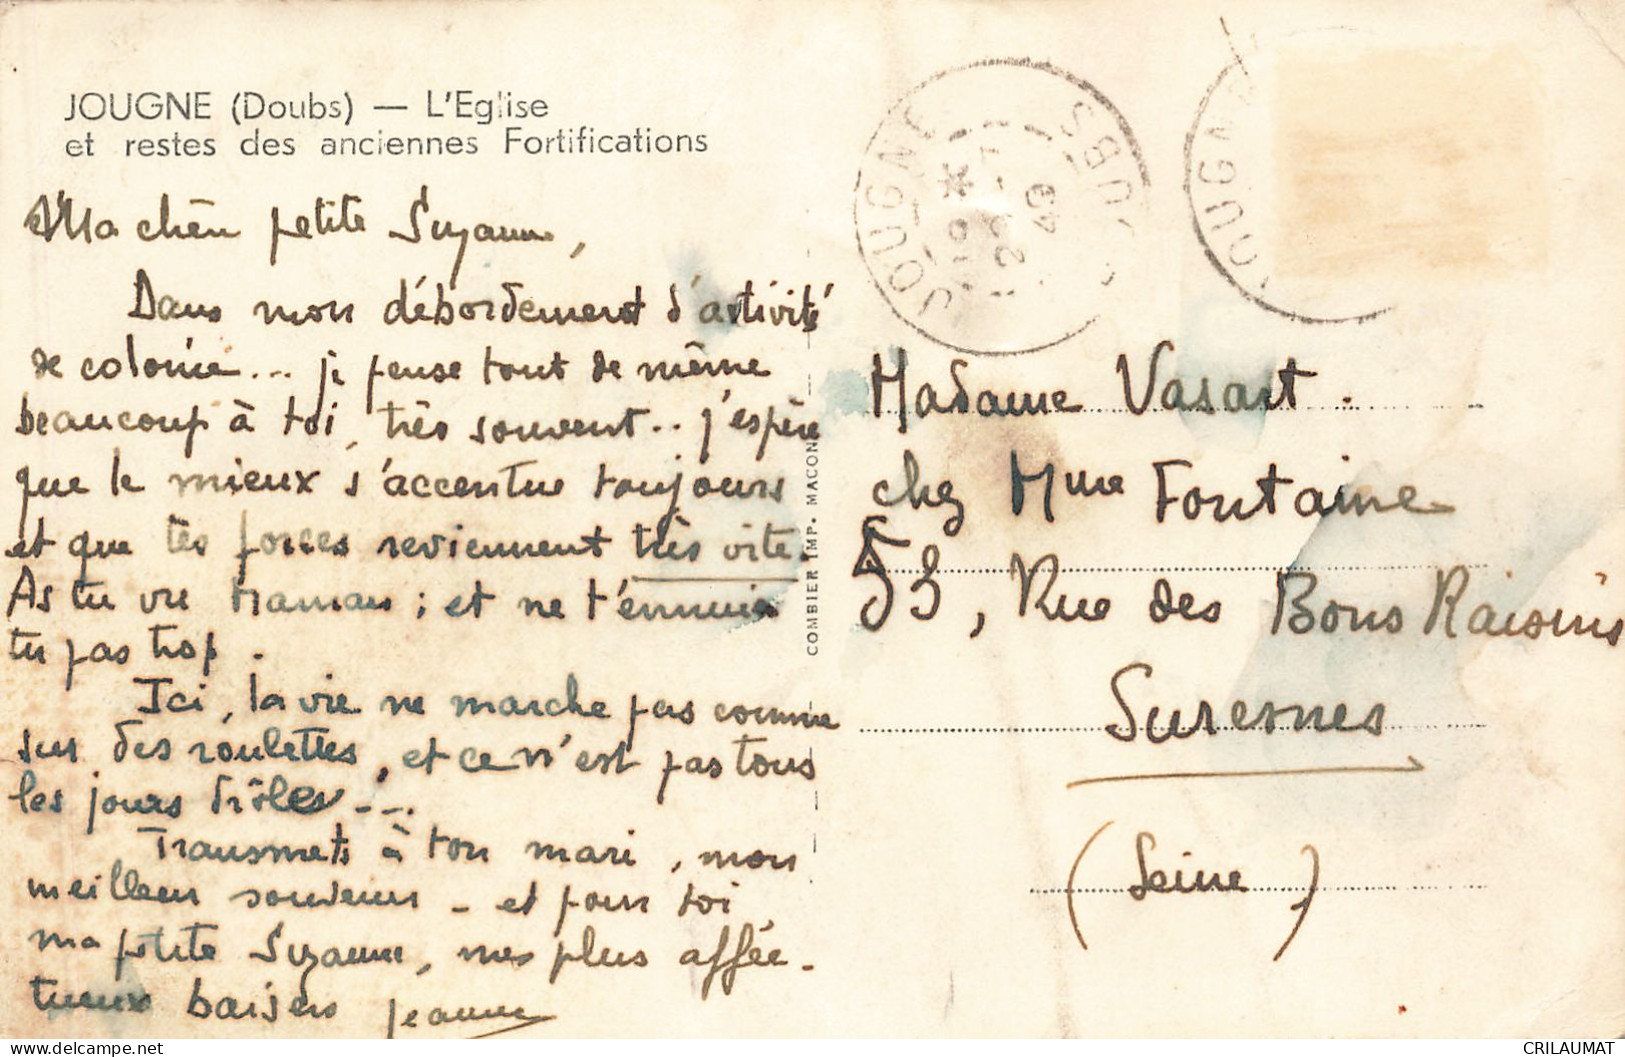 JOUGNE (Doubs) — L'Eglise
et restes des anciennes Fortifications
Ma chère petite Suzanne,
Dans mon débordement d'activité
de colonie... je pense tout de même
beaucoup à toi, très souvent.. j'espère
que le mieux s'accentue toujours
et que tes forces reviennent très vite.
As tu vu maman ; et ne t'ennuies
tu pas trop.
Ici, la vie ne marche pas comme
sur des roulettes, et ce n'est pas tous
les jours drôles...
Transmets à ton mari, mon
meilleur souvenir - et pour toi
ma petite Suzanne, mes plus affec-
tueux baisers Jeanne
COMBIER IMP. MACON
JOUGNE
DOUBS
JOUGNE
Madame Vasart.
chez Mme Fontaine
53, Rue des Bons Raisins
Suresnes
(Seine)
CRILAUMAT